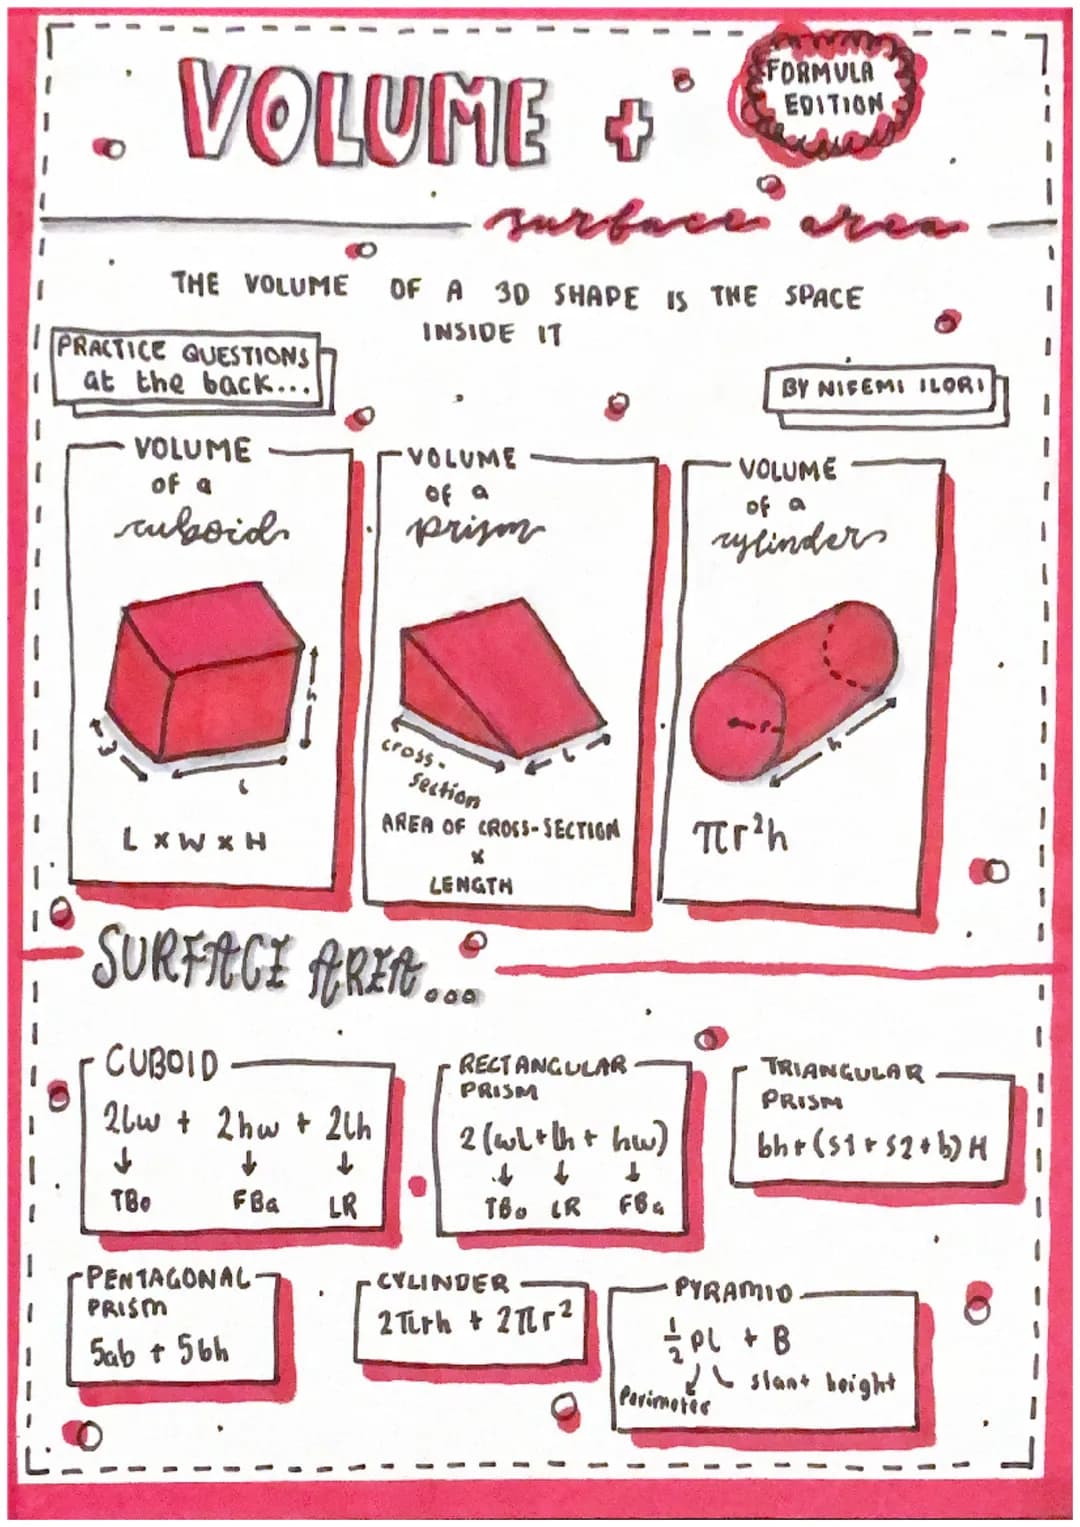 VOLUME +
FORMULA
EDITION
surface area
THE VOLUME OF A 3D SHAPE IS THE SPACE
INSIDE IT
PRACTICE QUESTIONS
at the back...
BY NIFEMI ILORI
VOLUME
of a
cuboid
h
w
L
L x W x H
VOLUME
of a
prism
cross-
section
L
AREA OF CROSS-SECTION
x
LENGTH
VOLUME
of a
cylinder
r
h
πr²h
SURFACE AREA...
CUBOID
2lw + 2hw + 2lh
↓ ↓ ↓
TBo FBa LR
RECTANGULAR
PRISM
2(wl+lh+hw)
↓ ↓ ↓
TBo LR FBa
TRIANGULAR
PRISM
bh+(s1+s2+b)H
PENTAGONAL
PRISM
5ab + 5bh
CYLINDER
2πrh + 2πr²
PYRAMID
½pl + B
slant height
Perimeter